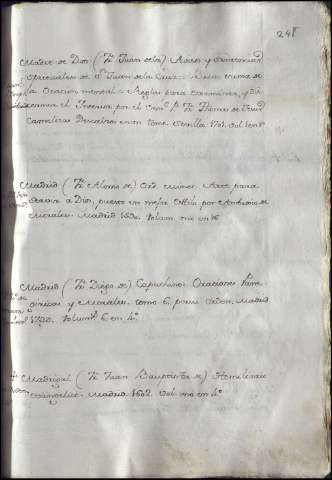 248
Madre de Dios (Fr. Juan de la) Avisos y Sentencias
espirituales de Sn. Juan de la Cruz: Suma de
la Oracion mental: Reglas para examinar, y dis
el Interior por el Fr. Thomas de Jesus
Carmelitas Descalzos en un tomo. Sevilla 1701. vol.
Madrid (Fr. Alonso de) Ord. Minor. Arte para
servir a Dios, puesto en mejor estilo por Ambrosio de
Morales. Madrid Volum. uno en 16
Madrid (Fr. Diego de) Capuchino. Oraciones Pane
giricas y Morales. tomo 6. Madrid
Volum. 6 en 4º
Madrigal (Fr. Juan Bauptista de) Homiliario
evangelico. Madrid 1602. Vol. uno en 4º